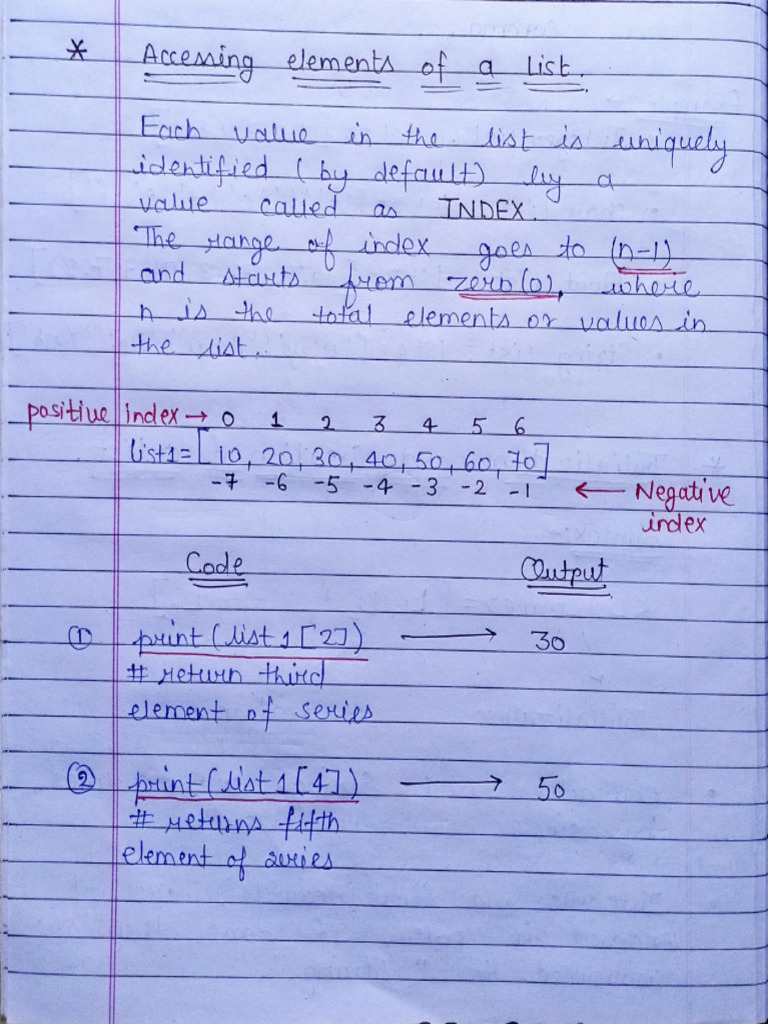 * Accessing elements of a list.
Each value in the list is uniquely
identified (by default) by a
value called as INDEX.
The range of index goes to (n-1)
and starts from zero(0), where
n is the total elements or values in
the list.
positive index → 0 1 2 3 4 5 6
list1 = [10, 20, 30, 40, 50, 60, 70]
-7 -6 -5 -4 -3 -2 -1 ← Negative
index
Code Output
① print(list1[2]) → 30
# return third
element of series
② print(list1[4]) → 50
# returns fifth
element of series